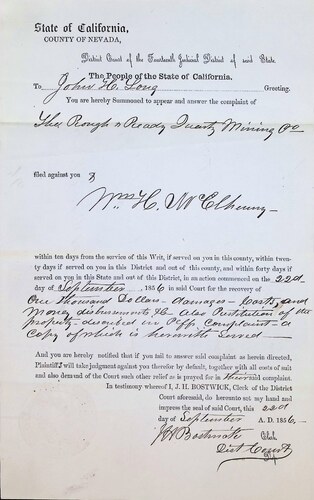 State of California,
COUNTY OF NEVADA,
District Court of the Fourteenth Judicial District of said State.
The People of the State of California.
To John H. Long Greeting.
You are hereby Summoned to appear and answer the complaint of
The Rough & Ready Quartz Mining Co
filed against you &
Wm H. McElhenny
within ten days from the service of this Writ, if served on you in this county, within twen-
ty days if served on you in this District and out of this county, and within forty days if
served on you in this State and out of this District, in an action commenced on the 22d
day of September, 1856 in said Court for the recovery of
One Thousand Dollars damages costs, and
Money disbursments &c. Also Restitution of the
property described in Pltffs Complaint a
Copy of which is herewith served
And you are hereby notified that if you fail to answer said complaint as herein directed,
Plaintiff will take judgment against you therefor by default, together with all costs of suit
and also demand of the Court such other relief as is prayed for in their said complaint.
In testimony whereof I, J. H. BOSTWICK, Clerk of the District
Court aforesaid, do hereunto set my hand and
impress the seal of said Court, this 22d
day of September A. D. 1856
J H Bostwick Clerk.
Dist Court